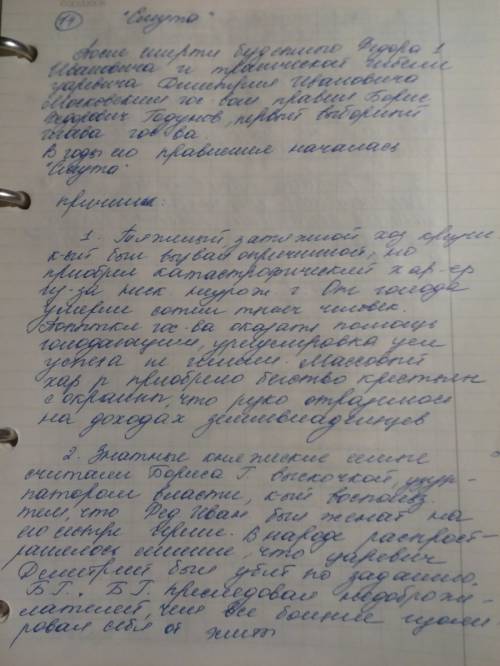 19 "Смута"
После смерти бездетного Федора I
Ивановича и трагической гибели
царевича Димитрия Ивановича
Московским гос-вом правил Борис
Федорович Годунов, первый выборный
глава гос-ва.
В годы его правления началась
"Смута"
причины:
1. Тяжелый затяжной хоз кризис
к-ый был вызван опричниной, но
приобрел катастрофический хар-ер
из-за неск неурож г. От голода
умерли сотни тысяч человек.
Попытки гос-ва оказать помощь
голодающим, урегулировка цен
успеха не имели. Массовый
хар р приобрело бегство крестьян
с окраины, что резко отразилось
на доходах землевладельцев
2. Знатные княжеские семьи
считали Бориса Г выскочкой, узур-
патором власти, к-ый воспольз
тем, что Фед Иван был женат на
его сестре Ирине. В народе распрост-
ранилось мнение, что царевич
Димитрий был убит по заданию
Б Г. Б Г. преследовал недоброже-
лателей, чем все больше изоли-
ровал себя от